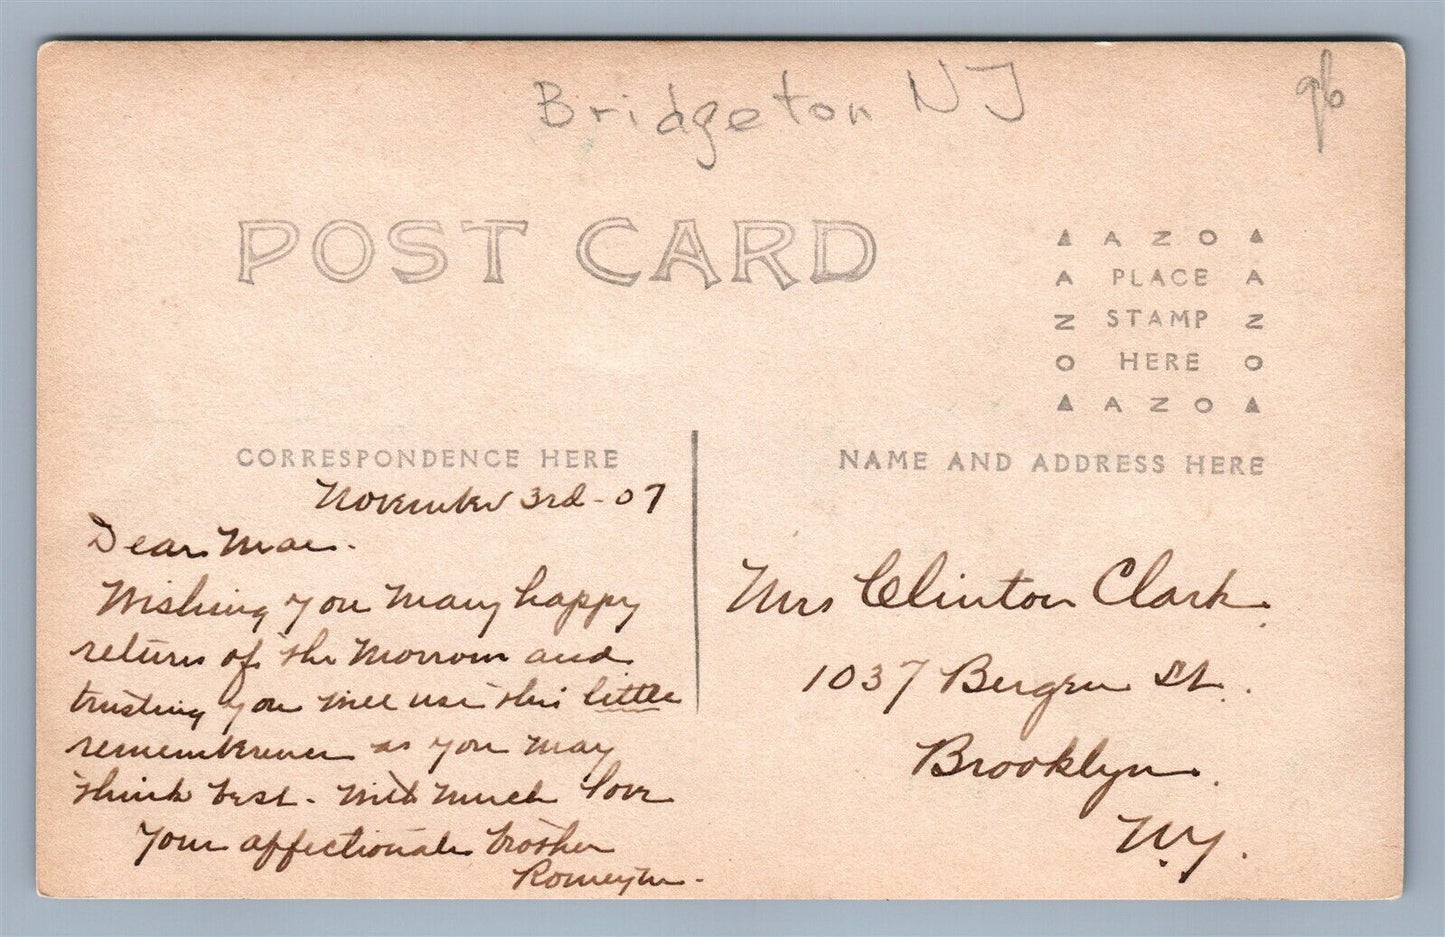 Bridgeton NJ
POST CARD
AZO
PLACE
STAMP
HERE
AZO
AZO
AZO
CORRESPONDENCE HERE
NAME AND ADDRESS HERE
November 3rd - 07
Dear Mae.
Wishing you many happy
return of the morrow and
trusting you will use this little
rememberance as you may
think best. With much love
Your affectionate brother
Romeyn.
Mrs Clinton Clark.
1037 Bergen St.
Brooklyn.
N.Y.